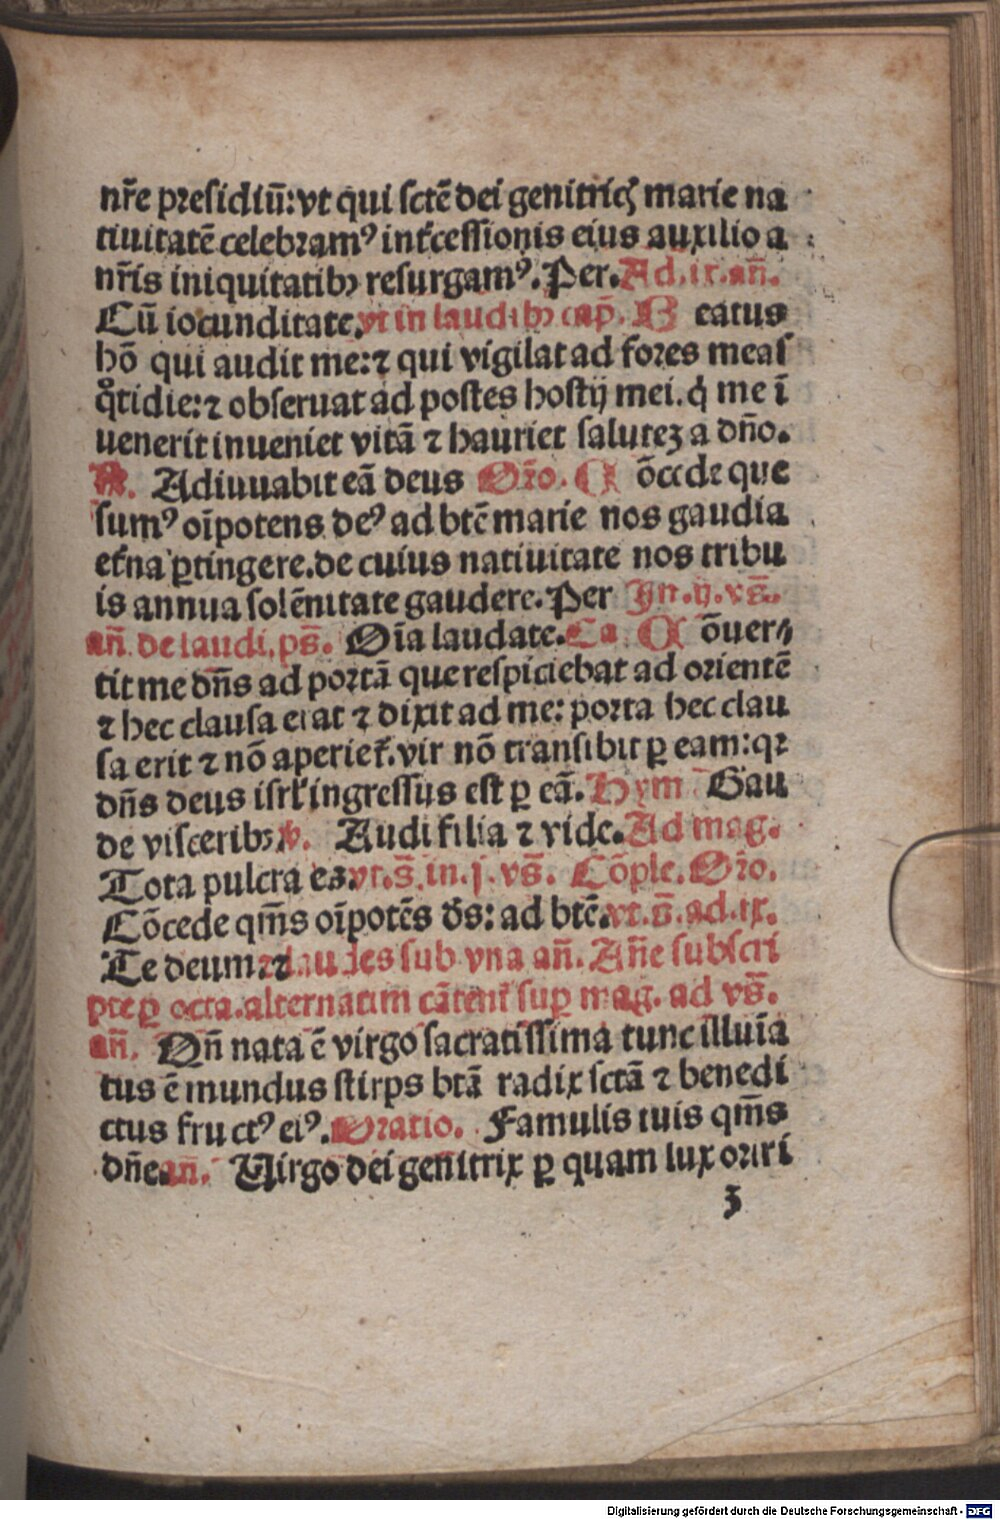 nr̃e presidiũ: vt qui sctẽ dei genitric̨ marie na
tiuitatẽ celebramꝰ int̃cessionis eius auxilio a
nr̃is iniquitatibꝫ resurgamꝰ. Per. Ad. ix. añ.
Cũ iocunditate. vt in laudibꝫ cap̃. B eatus
hõ qui audit me: ⁊ qui vigilat ad fores meas
q̊tidie: ⁊ obseruat ad postes hostij mei. q̇ me ĩ
uenerit inueniet vitã ⁊ hauriet salutez a dño.
R̃. Adiuuabit eã deus Oro̅. C õcede que
sumꝰ oĩpotens deꝰ ad btẽ marie nos gaudia
et̃na ꝑtingere. de cuius natiuitate nos tribu
is annua solẽnitate gaudere. Per In. ij. vs̃.
añ. de laudi. ps̃. Oĩa laudate. Ca. C õuer⸗
tit me dñs ad portã que respiciebat ad orientẽ
⁊ hec clausa erat ⁊ dixit ad me: porta hec clau
sa erit ⁊ nõ aperiet̃. vir nõ transibit ꝑ eam: qꝛ
dñs deus isrl̃ ingressus est ꝑ eã. Hym Gau
de visceribꝫ ꝟ. Audi filia ⁊ vide. Ad mag.
Tota pulcra es. vt. s̃. in. j. vs̃. Cõple. Oro̅.
Cõcede qm̃s oĩpotẽs ds̃: ad btẽ. vt. s̃. ad. ix.
Te deum ⁊ laudes sub vna añ. Añe subscri
pte ꝑ octa. alternatim cãtent̃ suꝑ mag. ad vs̃.
añ. Qñ nata ẽ virgo sacratissima tunc illuĩa
tus ẽ mundus stirps btã radix sctã ⁊ benedi
ctus fructꝰ eiꝰ. Oratio. Famulis tuis qm̃s
dñe. añ. Virgo dei genitrix ꝑ quam lux oriri
3
Digitalisierung gefördert durch die Deutsche Forschungsgemeinschaft - DFG